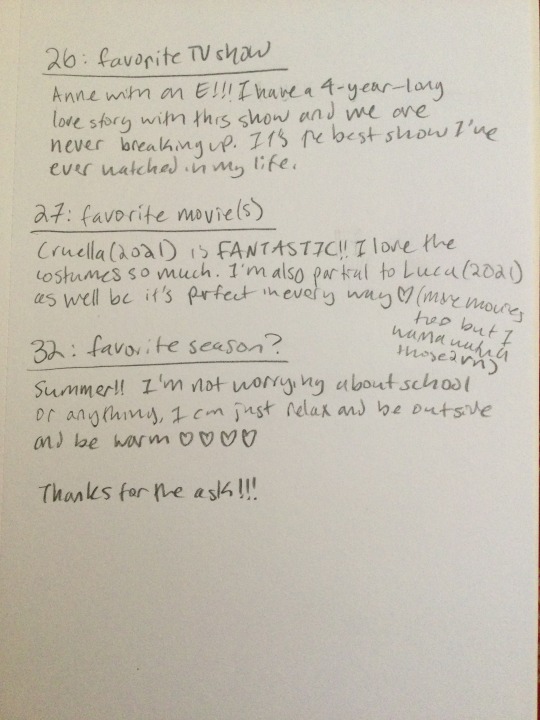 26: favorite TV show
Anne with an E!!! I have a 4-year-long
love story with this show and we are
never breaking up. It's the best show I've
ever watched in my life.
27: favorite movie(s)
Cruella (2021) is FANTASTIC!! I love the
costumes so much. I'm also partial to Luca (2021)
as well bc it's perfect in every way ♡ (more movies
too but I
wanna watch
those 2 rn)
32: favorite season?
Summer!! I'm not worrying about school
or anything, I can just relax and be outside
and be warm ♡♡♡♡
Thanks for the ask!!!